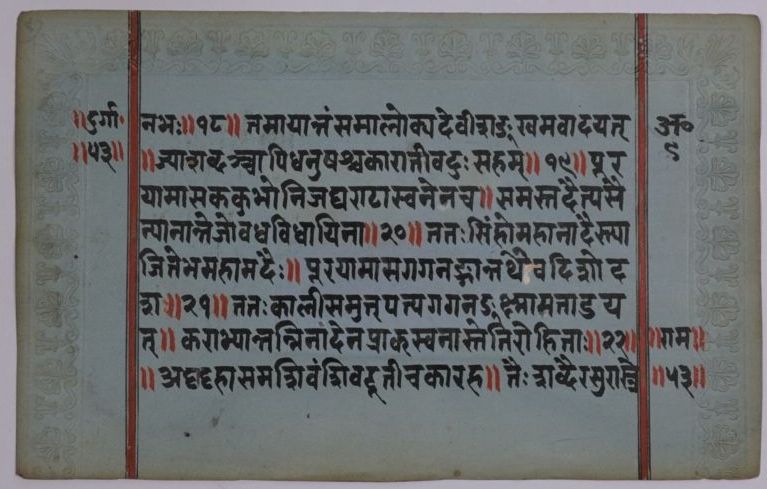 ॥दुर्गा॰ नभः॥१८॥ तमायान्तं समालोक्य देवीशङ्खमवादयत् अ॰
॥५३॥ ॥ज्याशब्दञ्चापि धनुषश्चकारातीवदुःसहम्॥१९॥ पूर ९
यामासककुभो निजघण्टास्वनेन च॥ समस्तदैत्यसै
न्यानान्तेजोवधविधायिना॥२०॥ ततः सिंहोमहानादैस्त्या
जितेभमहामदैः॥ पूरयामासगगनङ्गान्तथैव दिशोद
श॥२१॥ ततः कालीसमुत्पत्यगगनङ्क्ष्मामताडय
त्॥ कराभ्यान्तन्निनादेनप्राक्स्वनास्तेतिरोहिताः॥२२॥ ॥राम॥
॥अट्टाट्टहासमशिवंशिवदूतीचकारह॥ तैः शब्दैरसुरास्त्रे ॥५३॥